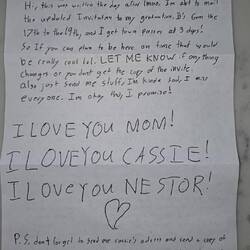 Hi, this was written the day after I mm. Im abt to mail
the updated Invitation to my graduation. It's 6am the
17th to the 19th, and I get town passes at 3 days!
So If you can plan to be here on time that would
be really cool lol. LET ME KNOW if anything
changes or you dont get the copy of the invite
also just send me stuff, Im kinda sad, I miss
everyone. Im okay tho, I promise!
I LOVE YOU MOM!
I LOVE YOU CASSIE!
I LOVE YOU NESTOR!
P.S. dont forget to send me cassie's adress and send a copy of